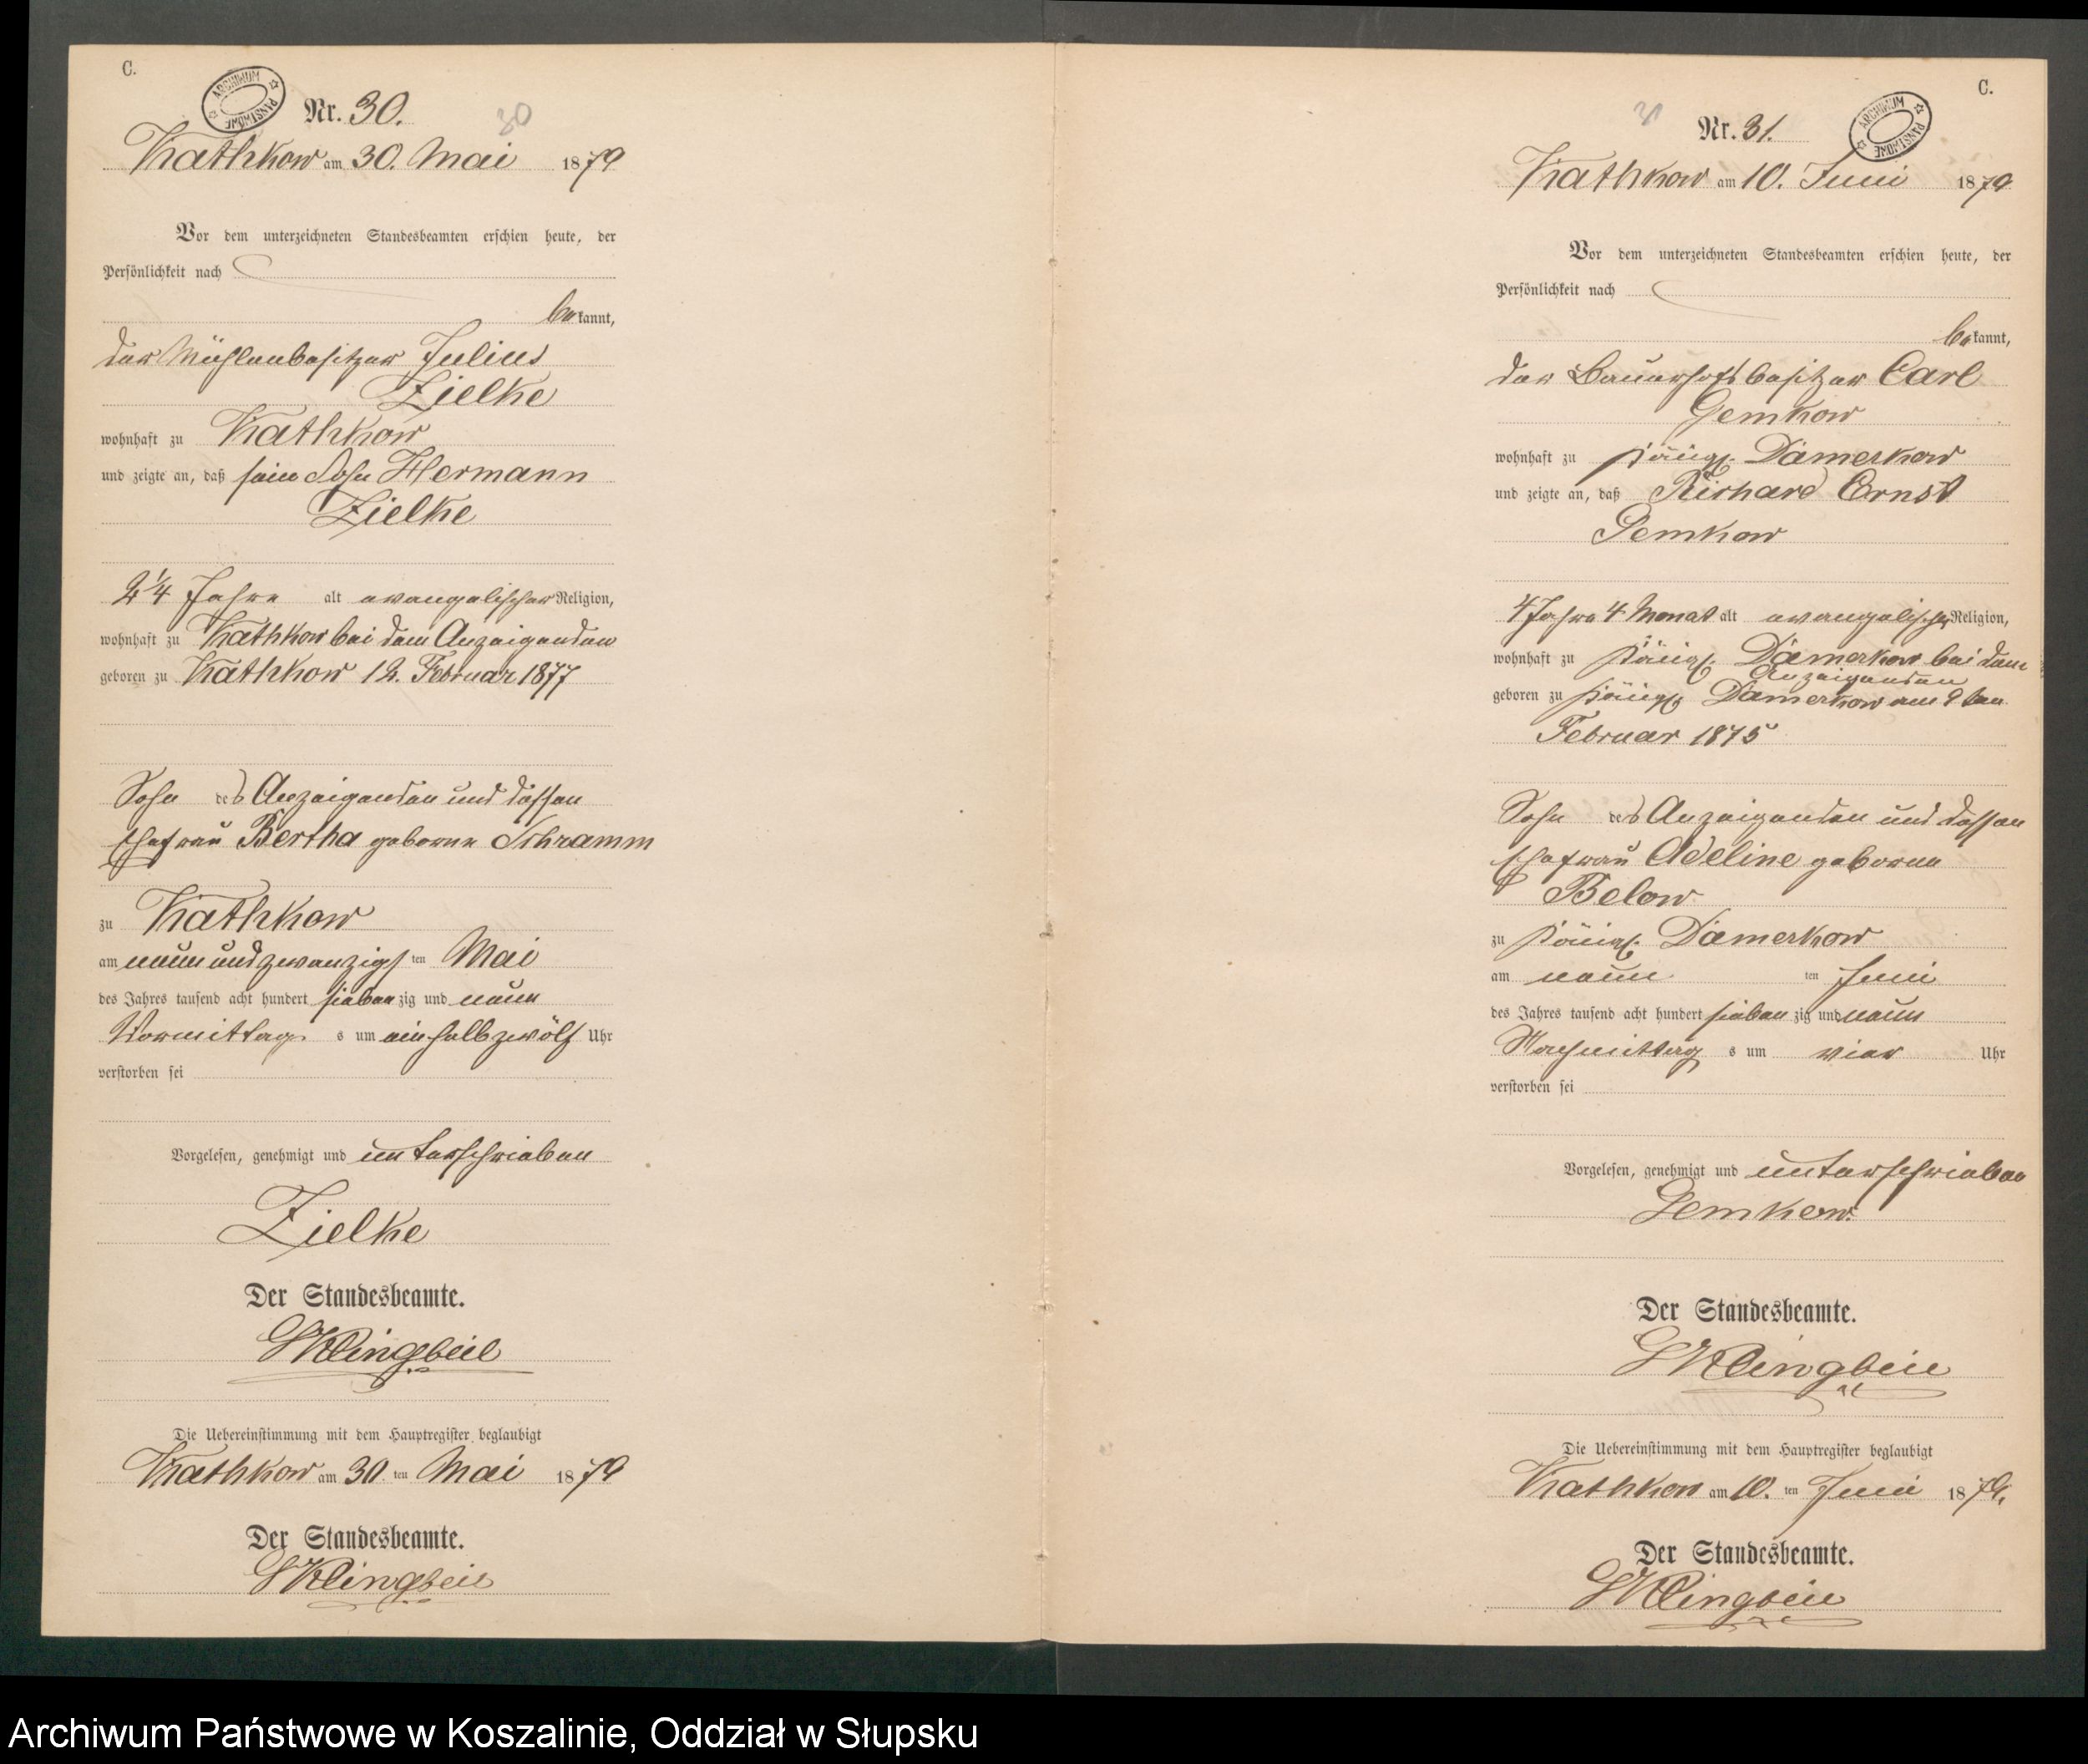 C.
ARCHIWUM PAŃSTWOWE
Nr. 30.
30
Kathkow am 30. Mai 1879
Vor dem unterzeichneten Standesbeamten erschien heute, der
Persönlichkeit nach
bekannt,
der Mühlenbesitzer Julius
Zielke
wohnhaft zu Kathkow
und zeigte an, daß sein Sohn Hermann
Zielke
2 1/4 Jahre alt evangelischer Religion,
wohnhaft zu Kathkow bei dem Anzeigenden
geboren zu Kathkow 12. Februar 1877
Sohn des Anzeigenden und dessen
Ehefrau Bertha geborne Schramm
zu Kathkow
am neunundzwanzigsten Mai
des Jahres tausend acht hundert siebenzig und neun
Vormittags um einhalbzwölf Uhr
verstorben sei
Vorgelesen, genehmigt und unterschrieben
Zielke
Der Standesbeamte.
Klingbeil
Die Uebereinstimmung mit dem Hauptregister beglaubigt
Kathkow am 30 ten Mai 1879
Der Standesbeamte.
Klingbeil
C.
31
ARCHIWUM PAŃSTWOWE
Nr. 31.
Kathkow am 10. Juni 1879
Vor dem unterzeichneten Standesbeamten erschien heute, der
Persönlichkeit nach
bekannt,
der Bauerhofsbesitzer Carl
Gemkow
wohnhaft zu Königl. Damerkow
und zeigte an, daß Richard Ernst
Gemkow
4 Jahre 4 Monat alt evangelischer Religion,
wohnhaft zu Königl. Damerkow bei dem
Anzeigenden
geboren zu Königl. Damerkow am 9ten
Februar 1875
Sohn des Anzeigenden und dessen
Ehefrau Adeline geborne
Below
zu Königl. Damerkow
am neun ten Juni
des Jahres tausend acht hundert siebenzig und neun
Nachmittags um vier Uhr
verstorben sei
Vorgelesen, genehmigt und unterschrieben
Gemkow.
Der Standesbeamte.
Klingbeil
Die Uebereinstimmung mit dem Hauptregister beglaubigt
Kathkow am 10. ten Juni 1879.
Der Standesbeamte.
Klingbeil
Archiwum Państwowe w Koszalinie, Oddział w Słupsku